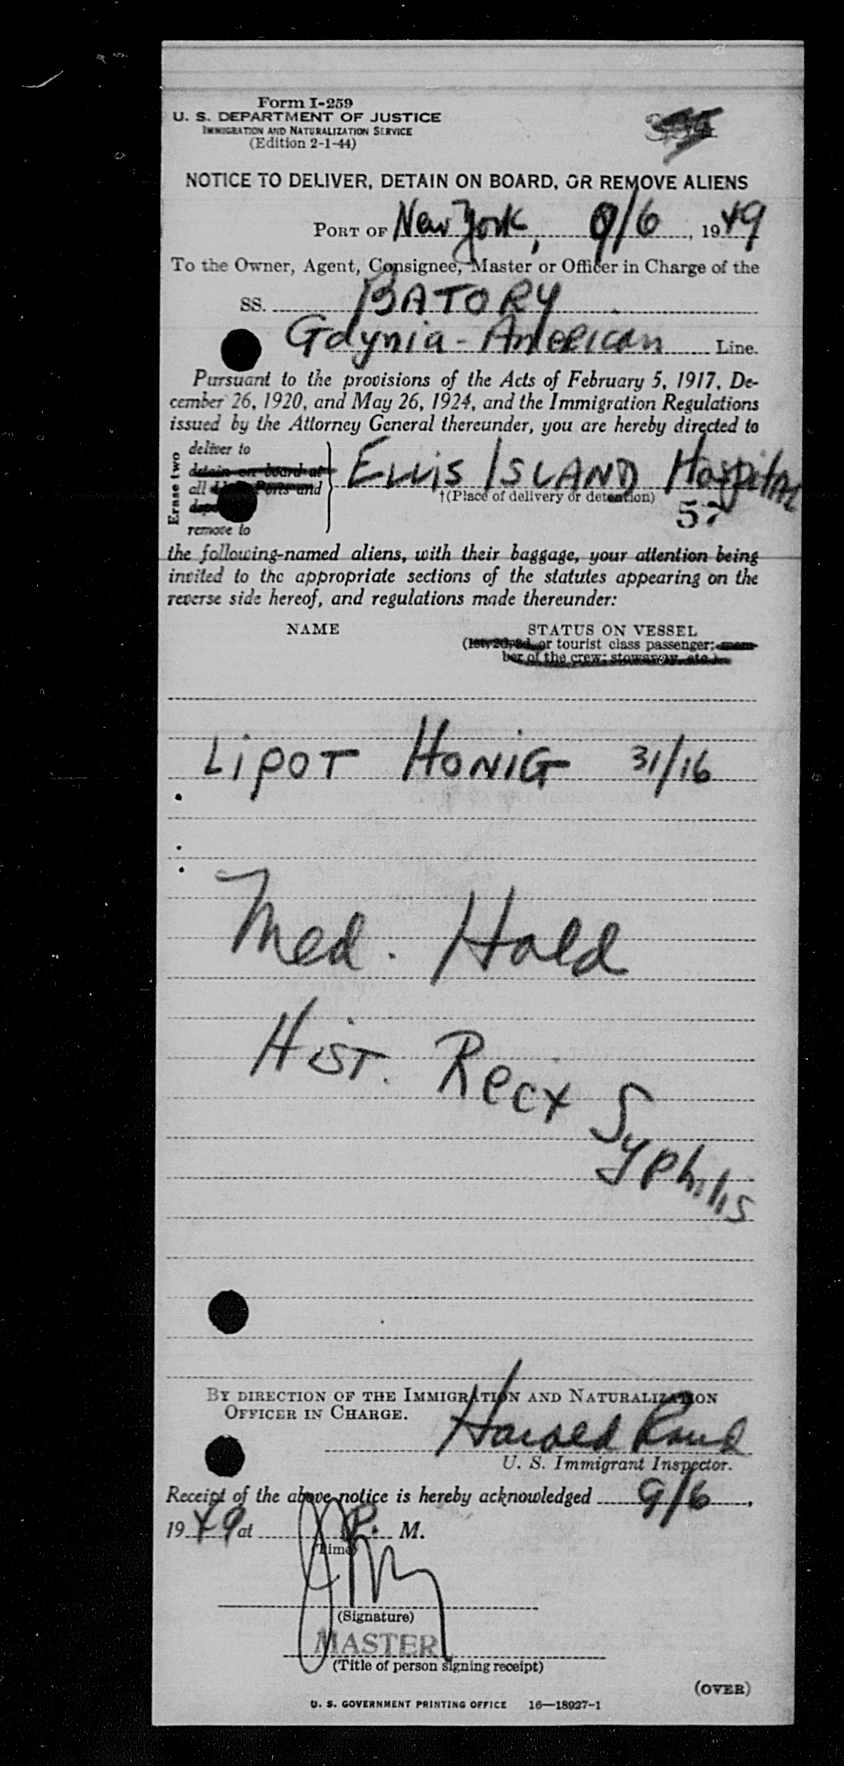 Form I-259
U. S. DEPARTMENT OF JUSTICE
IMMIGRATION AND NATURALIZATION SERVICE
(Edition 2-1-44)
NOTICE TO DELIVER, DETAIN ON BOARD, OR REMOVE ALIENS
PORT OF New York, 9/6, 1949
To the Owner, Agent, Consignee, Master or Officer in Charge of the
SS. BATORY
Gdynia-American Line.
Pursuant to the provisions of the Acts of February 5, 1917, De-
cember 26, 1920, and May 26, 1924, and the Immigration Regulations
issued by the Attorney General thereunder, you are hereby directed to
Erase two
deliver to
detain on board at
all Ports and
remove to
ELLIS ISLAND Hospital
†(Place of delivery or detention)
57
the following-named aliens, with their baggage, your attention being
invited to the appropriate sections of the statutes appearing on the
reverse side hereof, and regulations made thereunder:
NAME STATUS ON VESSEL
(1st, 2d, 3d, or tourist class passenger; mem-
ber of the crew; stowaway, etc.)
LIPOT HONIG 31/16
Med. Hold
HIST. Recx Syphilis
BY DIRECTION OF THE IMMIGRATION AND NATURALIZATION
OFFICER IN CHARGE.
Harold Rand
U. S. Immigrant Inspector.
Receipt of the above notice is hereby acknowledged 9/6,
1949 at P. M.
(Time)
(Signature)
MASTER
(Title of person signing receipt)
(OVER)
U. S. GOVERNMENT PRINTING OFFICE 16—18927-1